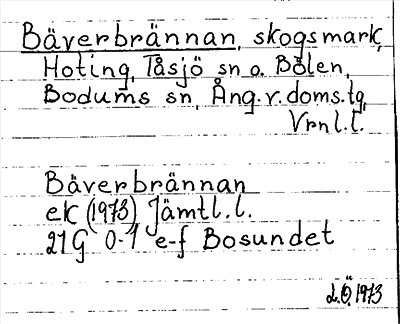 Bäverbrännan, skogsmark,
Hoting, Tåsjö sn o. Bölen,
Bodums sn, Ång. v. doms.lg,
Vrnl.l.
Bäverbrännan
ek (1973) Jämtl.l.
21G 0-1 e-f Bosundet
L.Ö. 1973